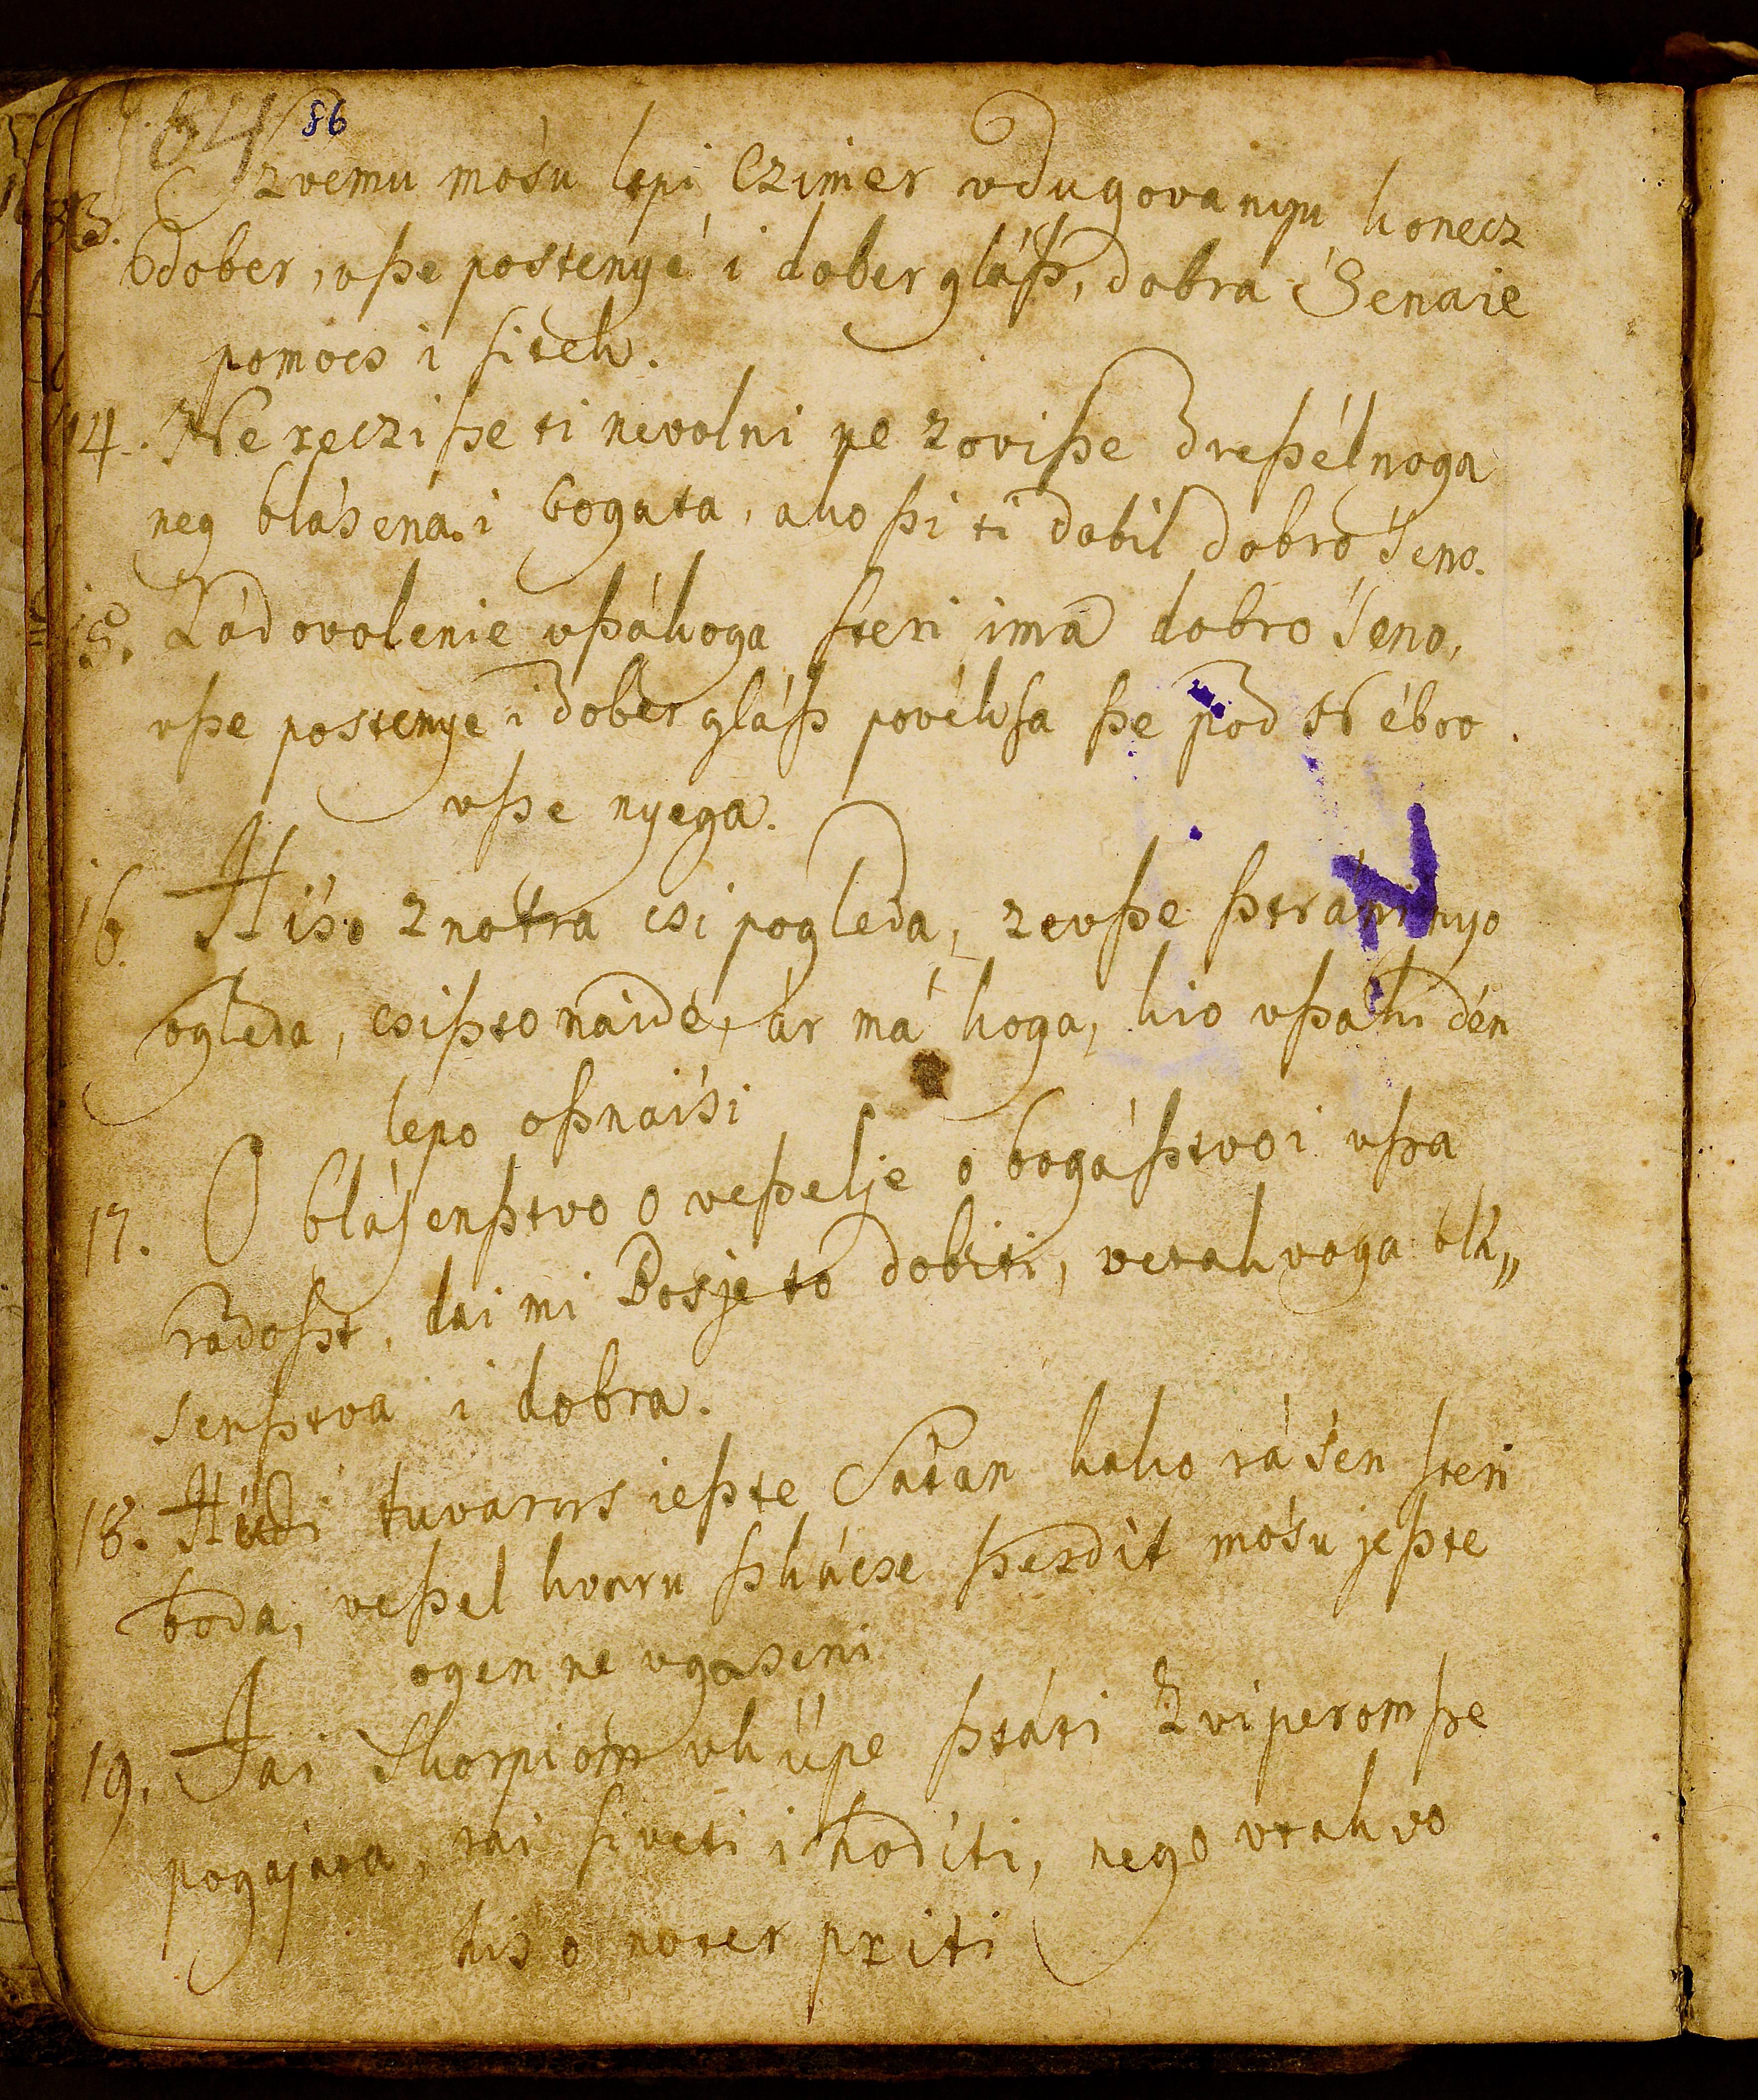 84 86
13. Szvemu mośu lepi Czimer vdugovanyu konecz
dober, vße postenyé i dober gláß, dobra Śenaie
pomocs i sitek.
14. Ne reczi ße ti nevolni ne zoviße dreßélnoga
neg bláśena i bogata, ako ßi ti dobil dobro śeno.
15. Zádovolenie vßákoga steri ima dobro śeno,
vße postenye i dober gláß povéksa ße pod Nébro
vße nyega.
16. Hiśo znotra csi pogleda, zevße ßtráni nyo
ogleda, csißto naide, ár má koga, kio vßaki dén
lepo oßnaiśi
17. O bláśenßtvo o veßelje o bogáßtvo i vßa
radoßt, dai mi Bosje to dobiti, vetakvoga blá„
śenßtva i dobra.
18. Húdi tuvarus ießte Satan kako ráśen steri
boda, veßel kvaru ßkácse ßerdit mośu jeßte
ogen ne vgaseni
19. Jai Skorpióm vküpe ßtáti Zviperom ße
pogajata, rai siveti i hoditi, nego vtakvo
hiśo noter priti